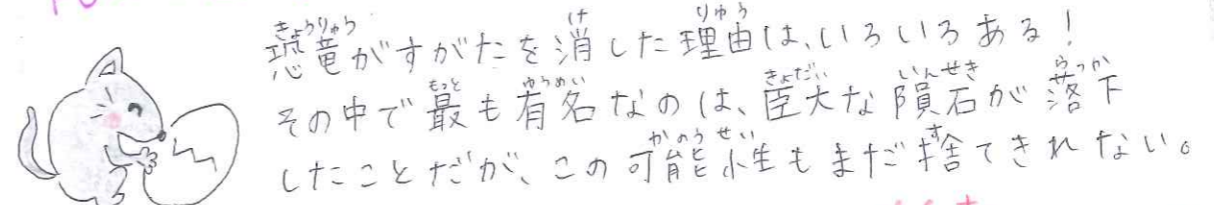 恐竜がすがたを消した理由は、いろいろある!
その中で最も有名なのは、臣大な隕石が落下
したことだが、この可能性もまだ捨てきれない。